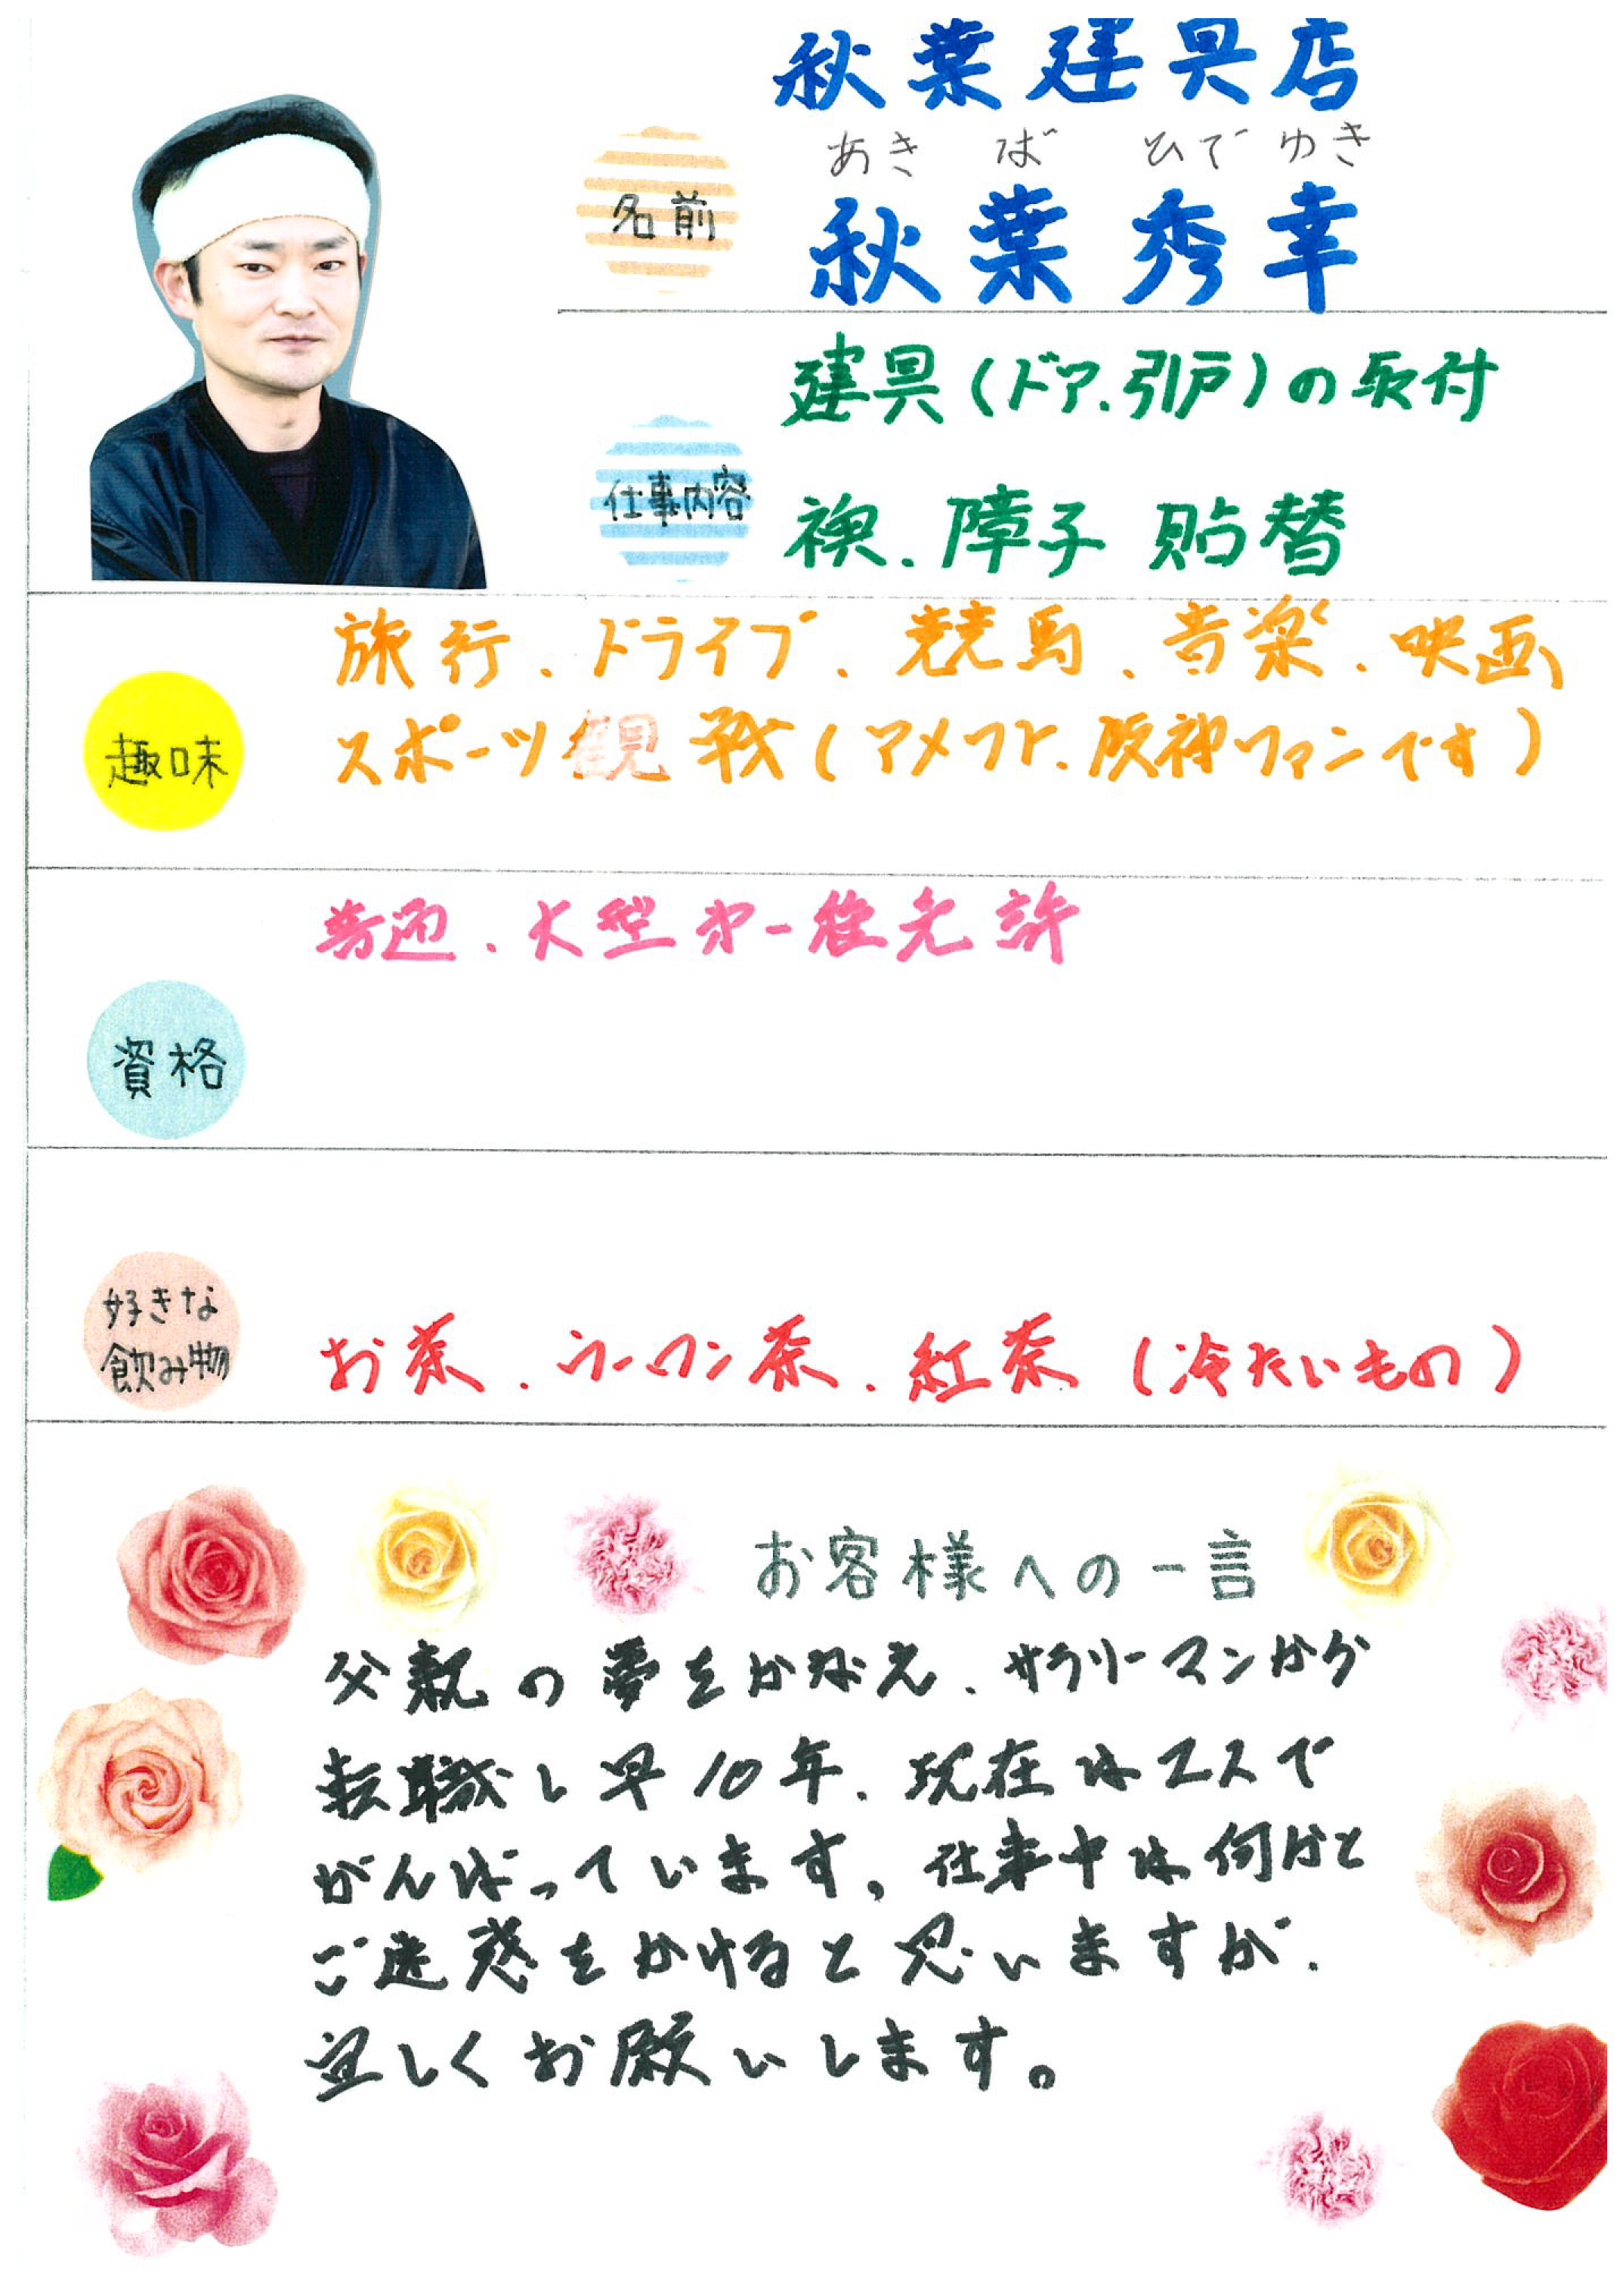 秋葉建具店
あきば ひでゆき
名前
秋葉秀幸
建具(ドア、引戸)の取付
仕事内容
襖、障子 貼替
旅行、ドライブ、競馬、音楽、映画、
趣味
スポーツ観戦(アメフト、阪神ファンです)
普通、大型第一種免許
資格
好きな
飲み物
お茶、ウーロン茶、紅茶(冷たいもの)
お客様への一言
父親の夢をかなえ、サラリーマンから
転職し早10年、現在はエスで
がんばっています。仕事中は何かと
ご迷惑をかけると思いますが、
宜しくお願いします。